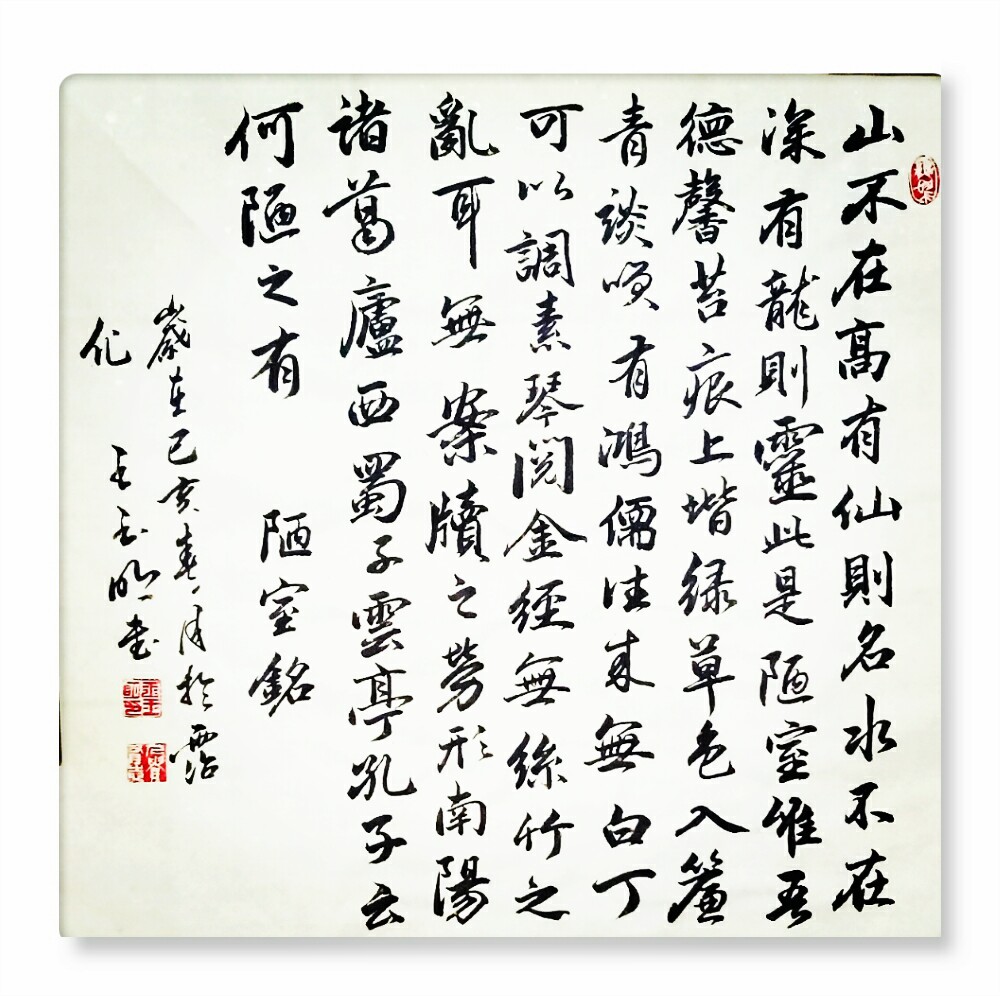 山不在高有仙則名水不在
深有龍則靈此是陋室維吾
德馨苔痕上堦緑草色入簾
青談有鴻儒往来無白丁
可以調素琴閱金經無絲竹之
亂耳無案牘之勞形南陽
諸葛廬西蜀子雲亭孔子云
何陋之有 陋室銘
歲在己亥春月於霑
化 王玉明書